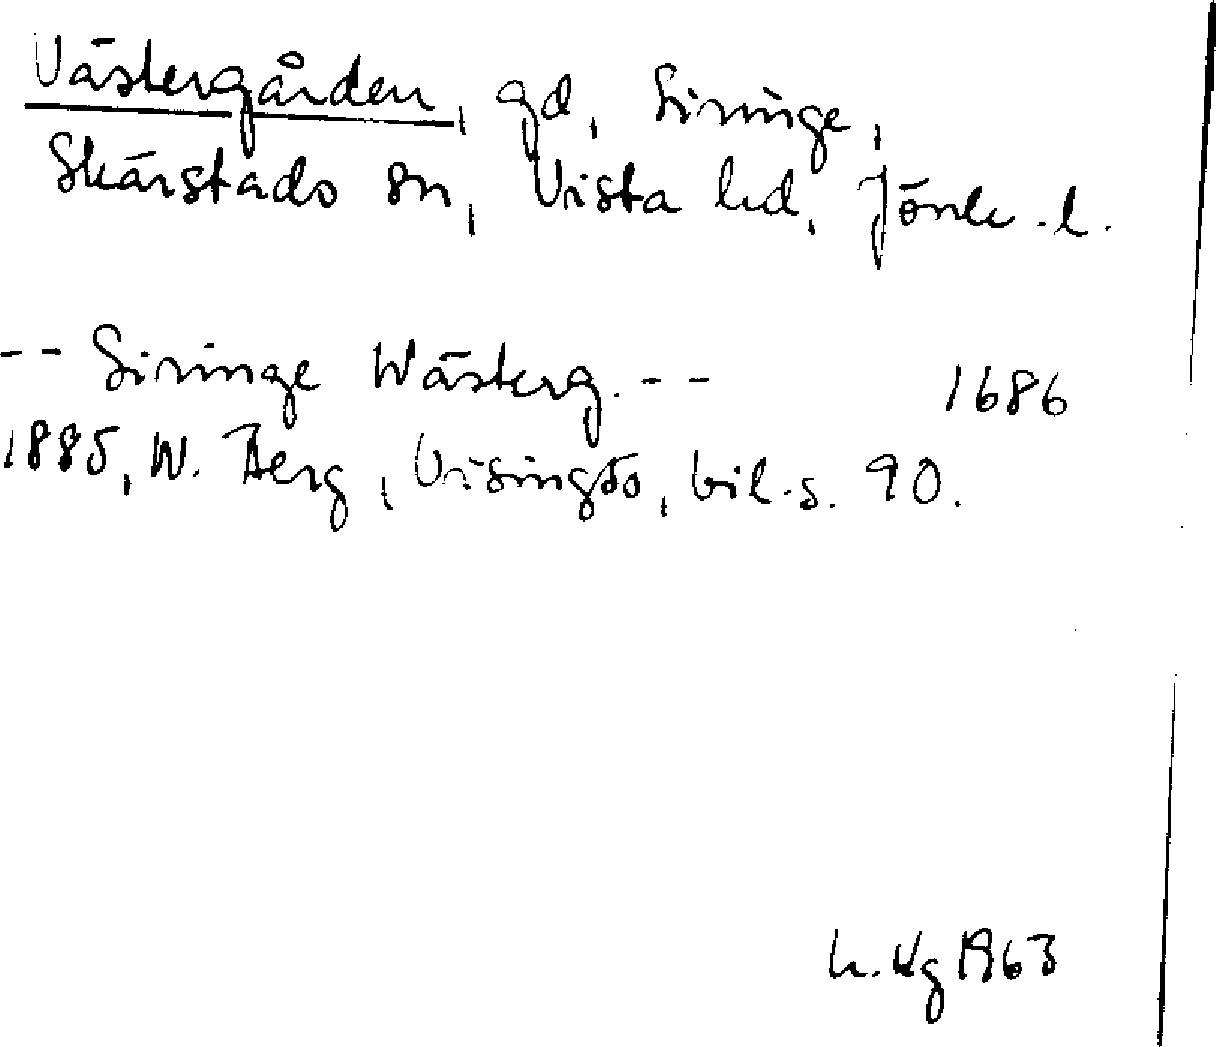 Västergården, gd, Siringe,
Skärstads sn, Vista hd, Jönk. l.
-- Siringe Wästerg. -- 1686
1885, W. Berg, Visingsö, bil. s. 90.
1963